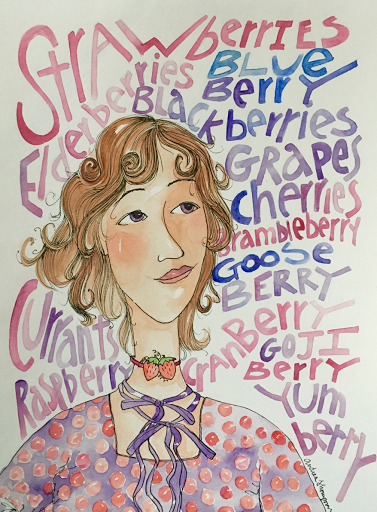 Strawberries
Elderberries
BLUE
BERRY
BLackberries
GRAPES
Cherries
Brambleberry
GOOSE
BERRY
Currants
CranBerry
GOJI
BERRY
Raspberry
Yum
berry